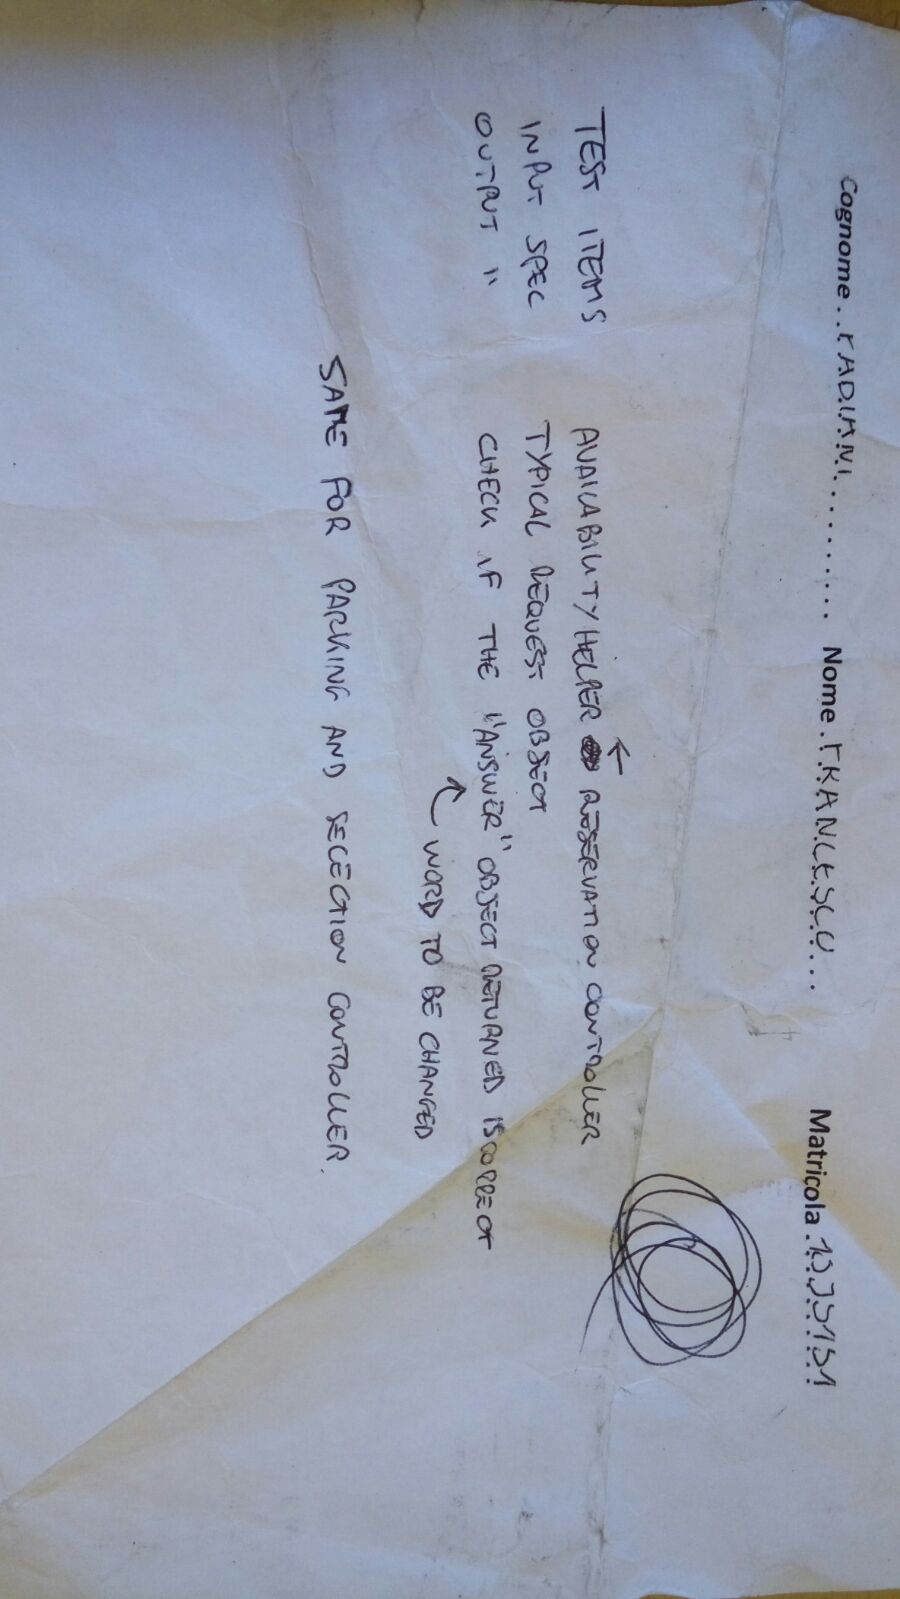 Cognome..FADIANI......... Nome.FRANCESCO... Matricola.
TEST ITEMS AVAILABILITYHELPER ← RESERVATION CONTROLLER
INPUT SPEC TYPICAL REQUEST OBJECT
OUTPUT " CHECK IF THE "ANSWER" OBJECT RETURNED IS CORRECT
WORD TO BE CHANGED
SAME FOR PARKING AND SELECTION CONTROLLER.